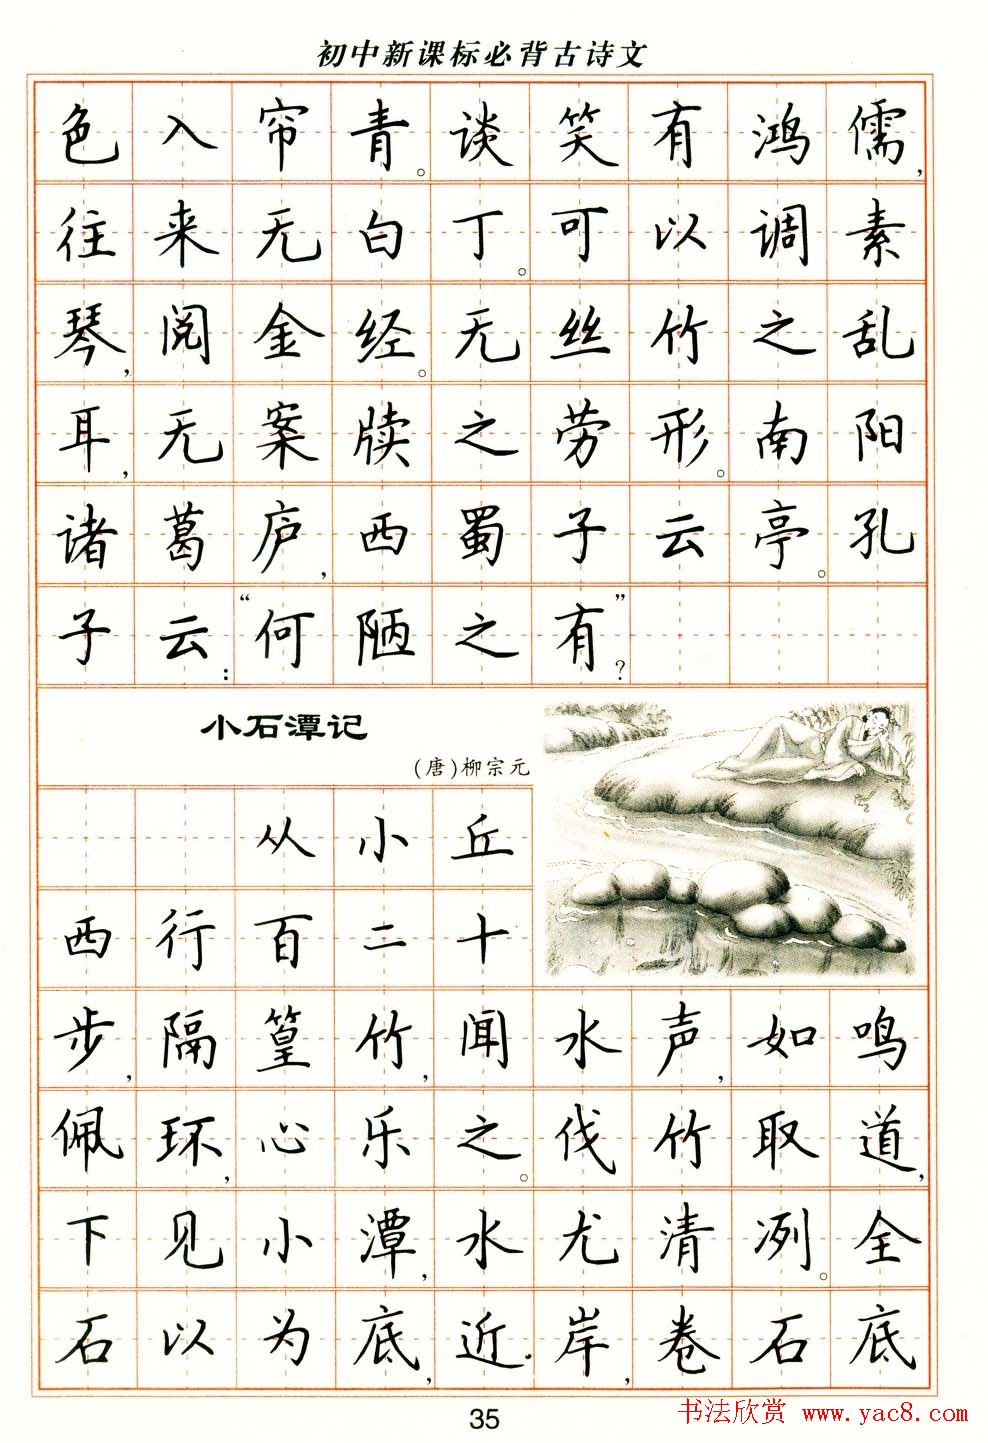 初中新课标必背古诗文
色入帘青。谈笑有鸿儒，
往来无白丁。可以调素
琴，阅金经。无丝竹之乱
耳，无案牍之劳形。南阳
诸葛庐，西蜀子云亭。孔
子云：“何陋之有”？
小石潭记
(唐)柳宗元
从小丘
西行百二十
步，隔篁竹，闻水声，如鸣
佩环，心乐之。伐竹取道，
下见小潭，水尤清冽。全
石以为底，近岸，卷石底
35
书法欣赏 www.yac8.com